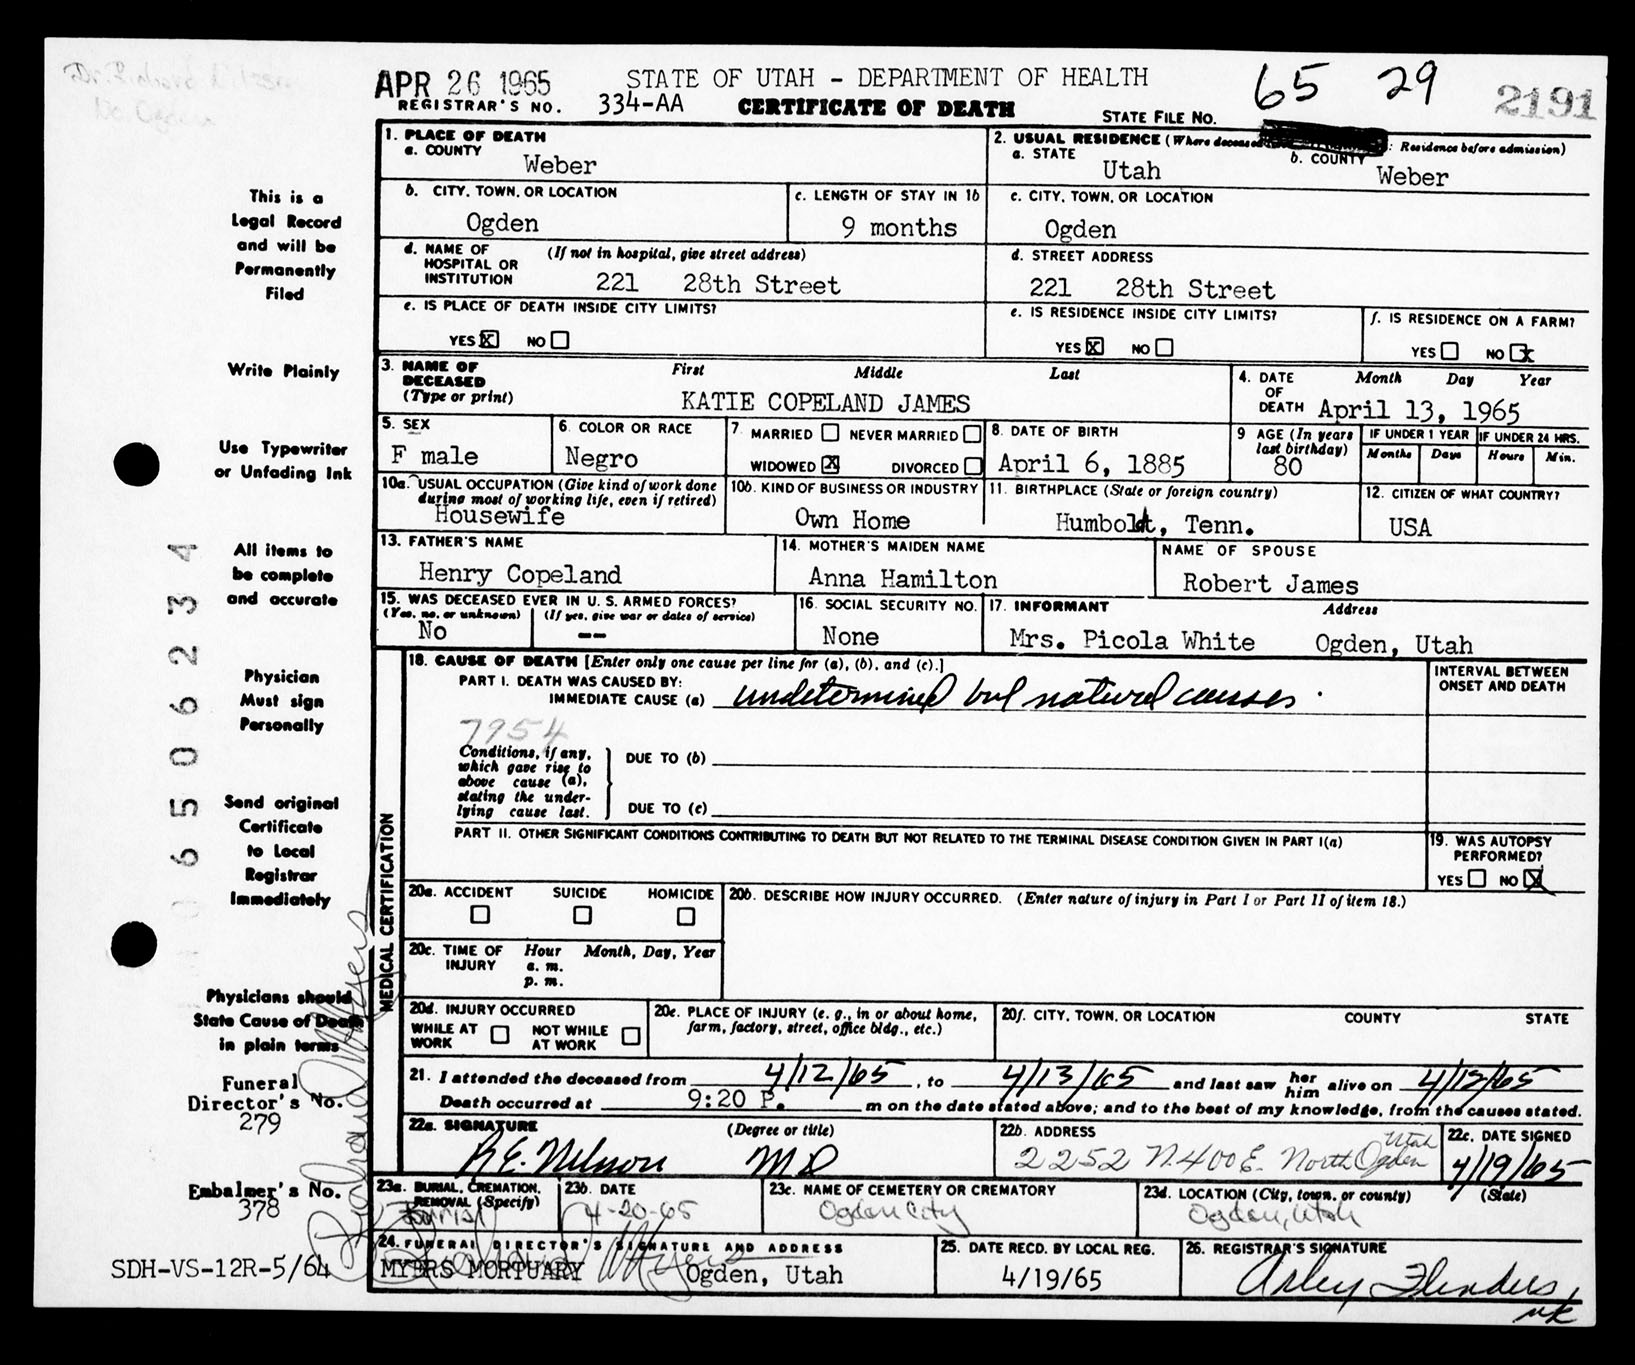 APR 26 1965
STATE OF UTAH - DEPARTMENT OF HEALTH
65 29 2191
REGISTRAR'S NO. 334-AA
CERTIFICATE OF DEATH
STATE FILE No.
1. PLACE OF DEATH
a. COUNTY
Weber
2. USUAL RESIDENCE (Where deceased : Residence before admission)
a. STATE
Utah
b. COUNTY
Weber
b. CITY, TOWN, OR LOCATION
Ogden
c. LENGTH OF STAY IN 1b
9 months
c. CITY, TOWN, OR LOCATION
Ogden
d. NAME OF HOSPITAL OR INSTITUTION
(If not in hospital, give street address)
221 28th Street
d. STREET ADDRESS
221 28th Street
e. IS PLACE OF DEATH INSIDE CITY LIMITS?
YES X NO
e. IS RESIDENCE INSIDE CITY LIMITS?
YES X NO
f. IS RESIDENCE ON A FARM?
YES NO X
3. NAME OF DECEASED
(Type or print)
First Middle Last
KATIE COPELAND JAMES
4. DATE OF DEATH
Month Day Year
April 13, 1965
5. SEX
F male
6. COLOR OR RACE
Negro
7. MARRIED NEVER MARRIED
WIDOWED X DIVORCED
8. DATE OF BIRTH
April 6, 1885
9 AGE (In years last birthday)
80
IF UNDER 1 YEAR
Months Days
IF UNDER 24 HRS.
Hours Min.
10a. USUAL OCCUPATION (Give kind of work done
during most of working life, even if retired)
Housewife
10b. KIND OF BUSINESS OR INDUSTRY
Own Home
11. BIRTHPLACE (State or foreign country)
Humboldt, Tenn.
12. CITIZEN OF WHAT COUNTRY?
USA
13. FATHER'S NAME
Henry Copeland
14. MOTHER'S MAIDEN NAME
Anna Hamilton
NAME OF SPOUSE
Robert James
15. WAS DECEASED EVER IN U. S. ARMED FORCES?
(Yes, no, or unknown) (If yes, give war or dates of service)
No --
16. SOCIAL SECURITY NO.
None
17. INFORMANT Address
Mrs. Picola White Ogden, Utah
MEDICAL CERTIFICATION
18. CAUSE OF DEATH [Enter only one cause per line for (a), (b), and (c).]
INTERVAL BETWEEN
ONSET AND DEATH
PART I. DEATH WAS CAUSED BY:
IMMEDIATE CAUSE (a) undetermined but natural causes.
7954
Conditions, if any,
which gave rise to
above cause (a),
stating the under-
lying cause last.
DUE TO (b)
DUE TO (c)
PART II. OTHER SIGNIFICANT CONDITIONS CONTRIBUTING TO DEATH BUT NOT RELATED TO THE TERMINAL DISEASE CONDITION GIVEN IN PART I(a)
19. WAS AUTOPSY
PERFORMED?
YES NO X
20a. ACCIDENT SUICIDE HOMICIDE
20b. DESCRIBE HOW INJURY OCCURRED. (Enter nature of injury in Part I or Part II of item 18.)
20c. TIME OF INJURY
Hour Month, Day, Year
a. m.
p. m.
20d. INJURY OCCURRED
WHILE AT WORK
NOT WHILE AT WORK
20e. PLACE OF INJURY (e. g., in or about home,
farm, factory, street, office bldg., etc.)
20f. CITY, TOWN, OR LOCATION COUNTY STATE
21. I attended the deceased from 4/12/65, to 4/13/65 and last saw her him alive on 4/13/65
Death occurred at 9:20 P. m on the date stated above; and to the best of my knowledge, from the causes stated.
22a. SIGNATURE (Degree or title)
R.E. Nilsson MD
22b. ADDRESS
2252 N. 400 E. North Ogden Utah
22c. DATE SIGNED
4/19/65
23a. BURIAL, CREMATION, REMOVAL (Specify)
Burial
23b. DATE
4-20-65
23c. NAME OF CEMETERY OR CREMATORY
Ogden City
23d. LOCATION (City, town, or county) (State)
Ogden, Utah
24. FUNERAL DIRECTOR'S SIGNATURE AND ADDRESS
MYERS MORTUARY Ogden, Utah
25. DATE RECD. BY LOCAL REG.
4/19/65
26. REGISTRAR'S SIGNATURE
Arley Flinders
This is a
Legal Record
and will be
Permanently
Filed
Write Plainly
Use Typewriter
or Unfading Ink
All items to
be complete
and accurate
Physician
Must sign
Personally
Send original
Certificate
to Local
Registrar
Immediately
Physicians should
State Cause of Death
in plain terms
Funeral
Director's No.
279
Embalmer's No.
378
SDH-VS-12R-5/64
6506234